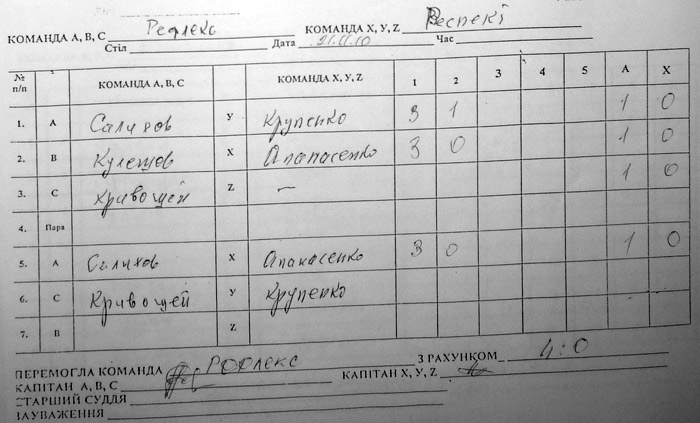 КОМАНДА А, В, С Рефлекс КОМАНДА X, У, Z Респект
Стіл Дата 21.11.10 Час
№ п/п КОМАНДА А, В, С КОМАНДА X, У, Z 1 2 3 4 5 А Х
1. А Салихов У Крупенко 3 1 1 0
2. В Кулешов Х Апанасенко 3 0 1 0
3. С Кривошей Z — 1 0
4. Пара
5. А Салихов Х Апанасенко 3 0 1 0
6. С Кривошей У Крупенко
7. В Z
ПЕРЕМОГЛА КОМАНДА Рефлекс З РАХУНКОМ 4:0
КАПІТАН А, В, С КАПІТАН X, У, Z
СТАРШИЙ СУДДЯ
ЗАУВАЖЕННЯ